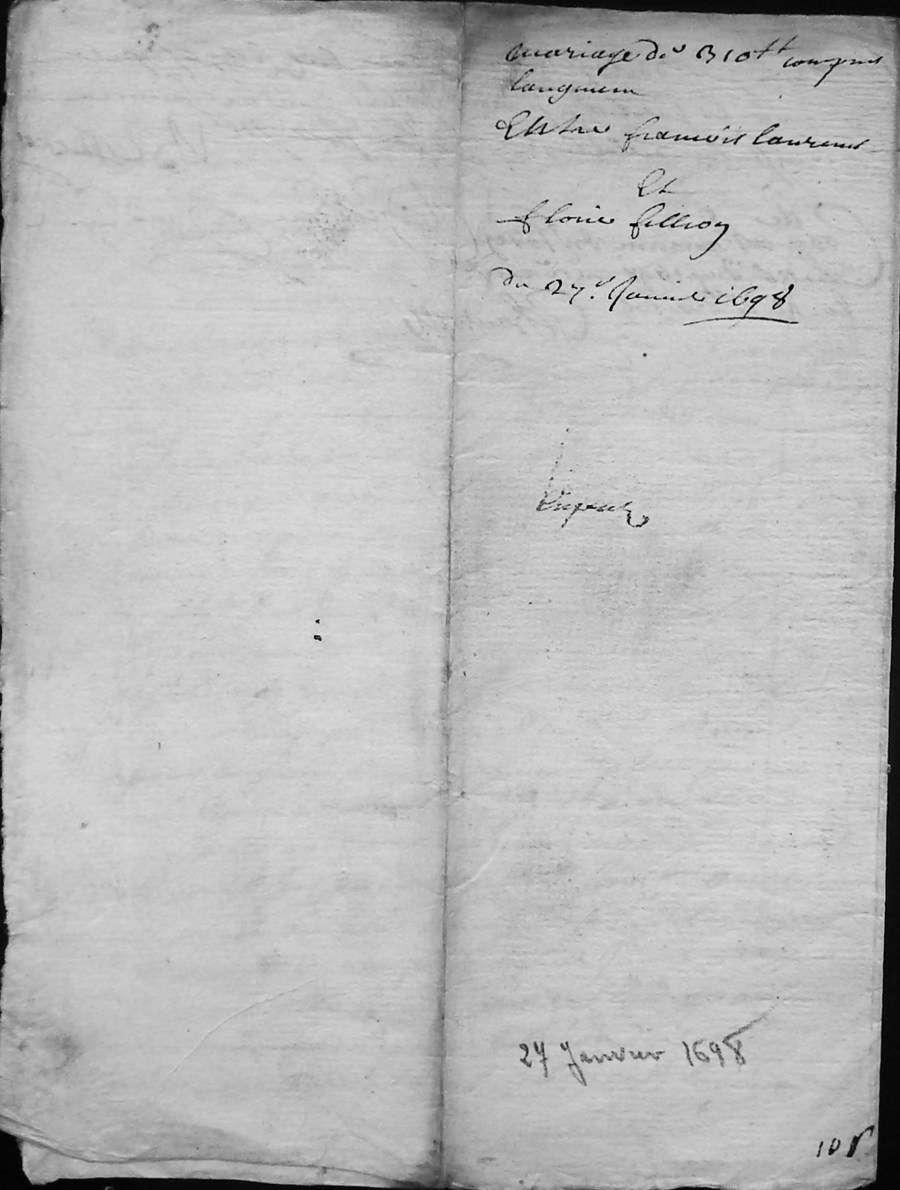 mariage de 310tt compris
laugment
Entre francois laurens
Et
florie
du 27e. Janvier 1698
27 Janvier 1698
10